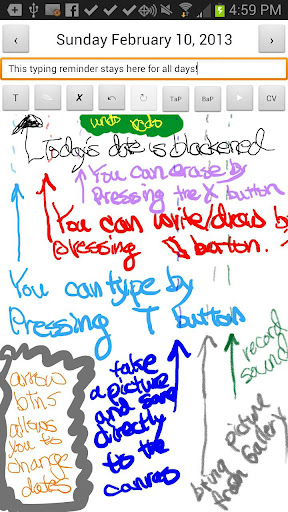 4:59 PM
Sunday February 10, 2013
This typing reminder stays here for all days!
T TaP BaP CV
undo redo
Today's date is blackened
You can erase by
Pressing the X button
You can write/draw by
pressing button.
You can type by
Pressing T button
arrow
btns
allows
you to
change
dates
take
a picture
and save
directly
to the
canvas
bring picture
from Gallery
record
sound